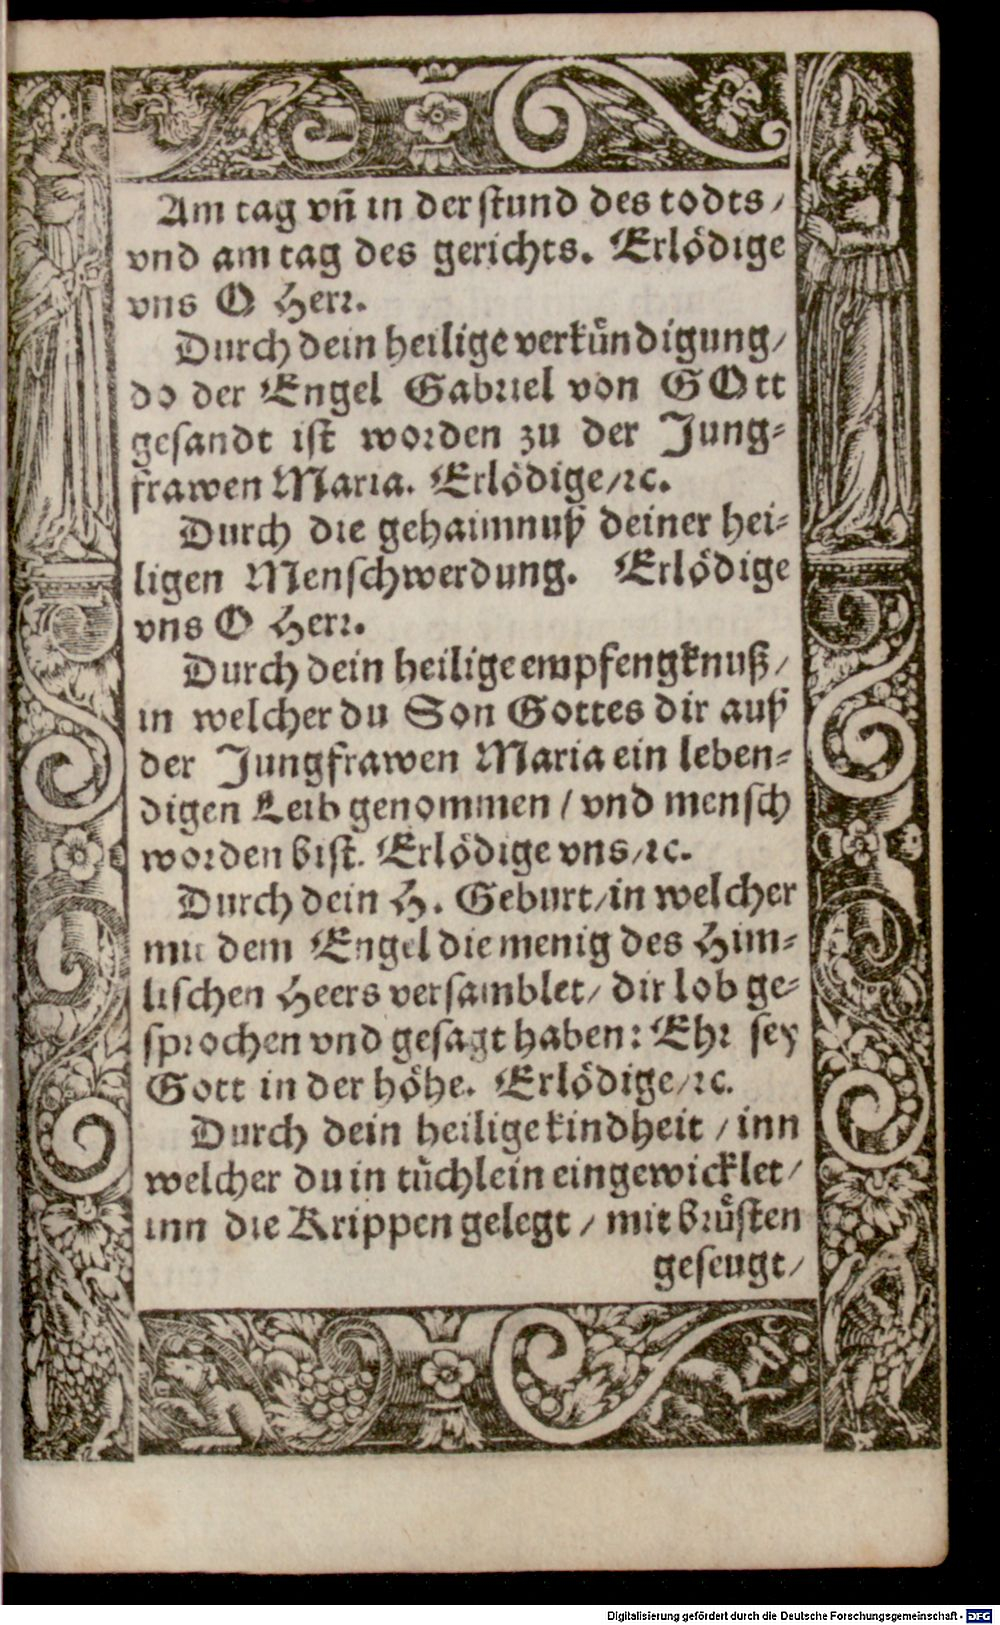 Am tag vñ in der stund des todts /
vnd am tag des gerichts. Erlödige
vns O Herr.
Durch dein heilige verkündigung /
do der Engel Gabriel von GOtt
gesandt ist worden zu der Jung-
frawen Maria. Erlödige / ꝛc.
Durch die gehaimnuß deiner hei-
ligen Menschwerdung. Erlödige
vns O Herr.
Durch dein heilige empfengknuß /
in welcher du Son Gottes dir auß
der Jungfrawen Maria ein leben-
digen Leib genommen / vnd mensch
worden bist. Erlödige vns / ꝛc.
Durch dein H. Geburt / in welcher
mit dem Engel die menig des Him-
lischen Heers versamblet / dir lob ge-
sprochen vnd gesagt haben: Ehr sey
Gott in der höhe. Erlödige / ꝛc.
Durch dein heilige kindheit / inn
welcher du in tüchlein eingewicklet /
inn die Krippen gelegt / mit brüsten
geseugt /
Digitalisierung gefördert durch die Deutsche Forschungsgemeinschaft - DFG